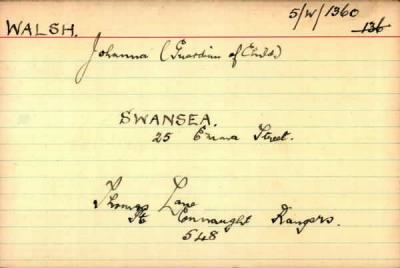 5/W/1360
WALSH. 136
Johanna (Guardian of Child)
SWANSEA.
25 Emma Street.
Thomas Lane
Pt Connaught Rangers.
548